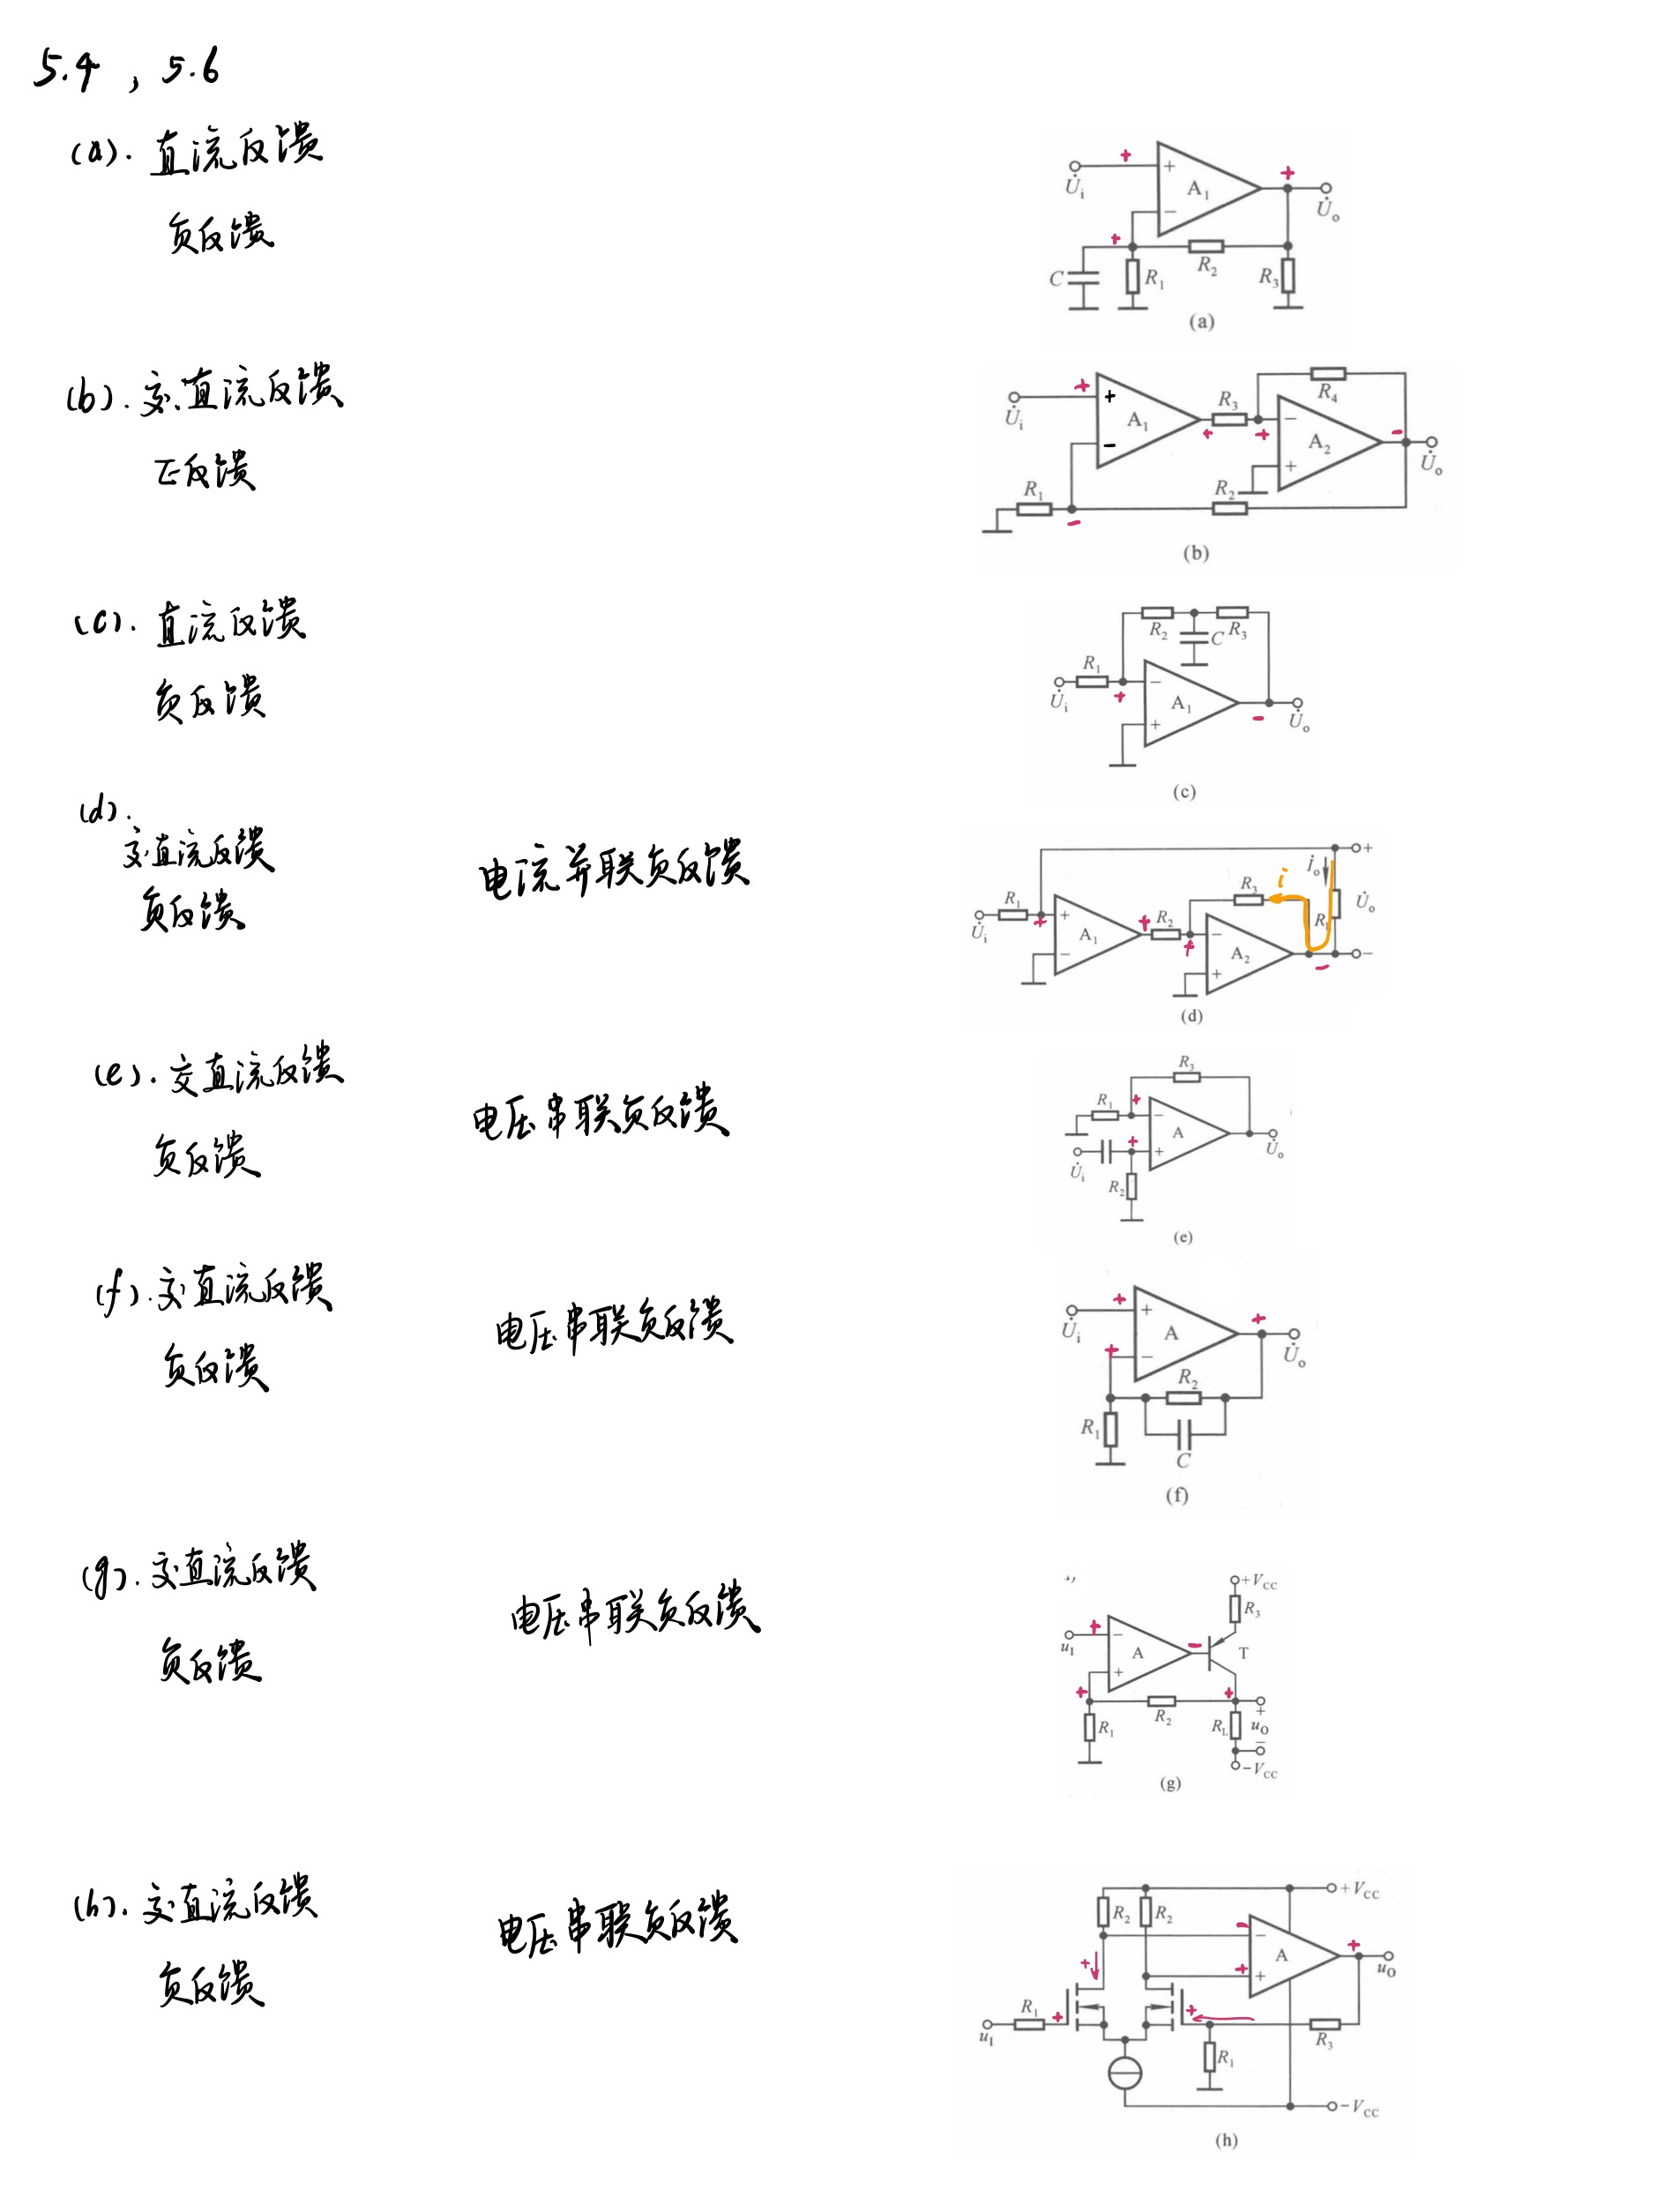 5.4 , 5.6
(a). 直流反馈
负反馈
U̇i
+
A1
−
U̇o
C
R1
R2
R3
(a)
(b). 交、直流反馈
正反馈
U̇i
+
A1
−
R3
R4
−
A2
+
U̇o
R1
R2
(b)
(c). 直流反馈
负反馈
R2
C
R3
R1
U̇i
−
A1
+
U̇o
(c)
(d).
交直流反馈
电流并联负反馈
负反馈
R1
U̇i
+
A1
−
R2
R3
i
İo
−
A2
+
U̇o
+
−
(d)
(e). 交直流反馈
电压串联负反馈
负反馈
R3
R1
−
A
+
U̇i
R2
U̇o
(e)
(f). 交直流反馈
电压串联负反馈
负反馈
U̇i
+
A
−
U̇o
R2
R1
C
(f)
(g). 交直流反馈
电压串联负反馈
负反馈
+VCC
R3
uI
−
A
+
T
R1
R2
RL
+
uO
−
−VCC
(g)
(h). 交直流反馈
电压串联负反馈
负反馈
+VCC
R2
R2
−
A
+
uO
R1
uI
R3
R1
−VCC
(h)